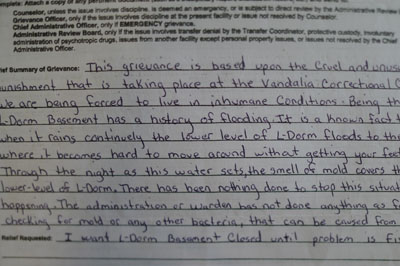 mplete: Attach a copy of any pertinent
Counselor, unless the issue involves discipline, is deemed an emergency, or is subject to direct review by the Administrative Review
Grievance Officer, only if the issue involves discipline at the present facility or issue not resolved by Counselor.
Chief Administrative Officer, only if EMERGENCY grievance.
Administrative Review Board, only if the issue involves transfer denial by the Transfer Coordinator, protective custody, involuntary
administration of psychotropic drugs, issues from another facility except personal property issues, or issues not resolved by the Chief
Administrative Officer.
ief Summary of Grievance: This grievance is based upon the Cruel and unus
unishment that is taking place at the Vandalia Correctional C
We are being forced to live in inhumane Conditions. Being th
L-Dorm Basement has a history of flooding. It is a known fact t
when it rains continually the lower level of L-Dorm floods to th
where it becomes hard to move around without getting your feet
Through the night as this water sets, the smell of mold covers th
lower-level of L-Dorm. There has been nothing done to stop this situat
happening. The administration or warden has not done anything as f
checking for mold or any other bacteria, that can be caused from
Relief Requested: I want L-Dorm Basement Closed until problem is Fi